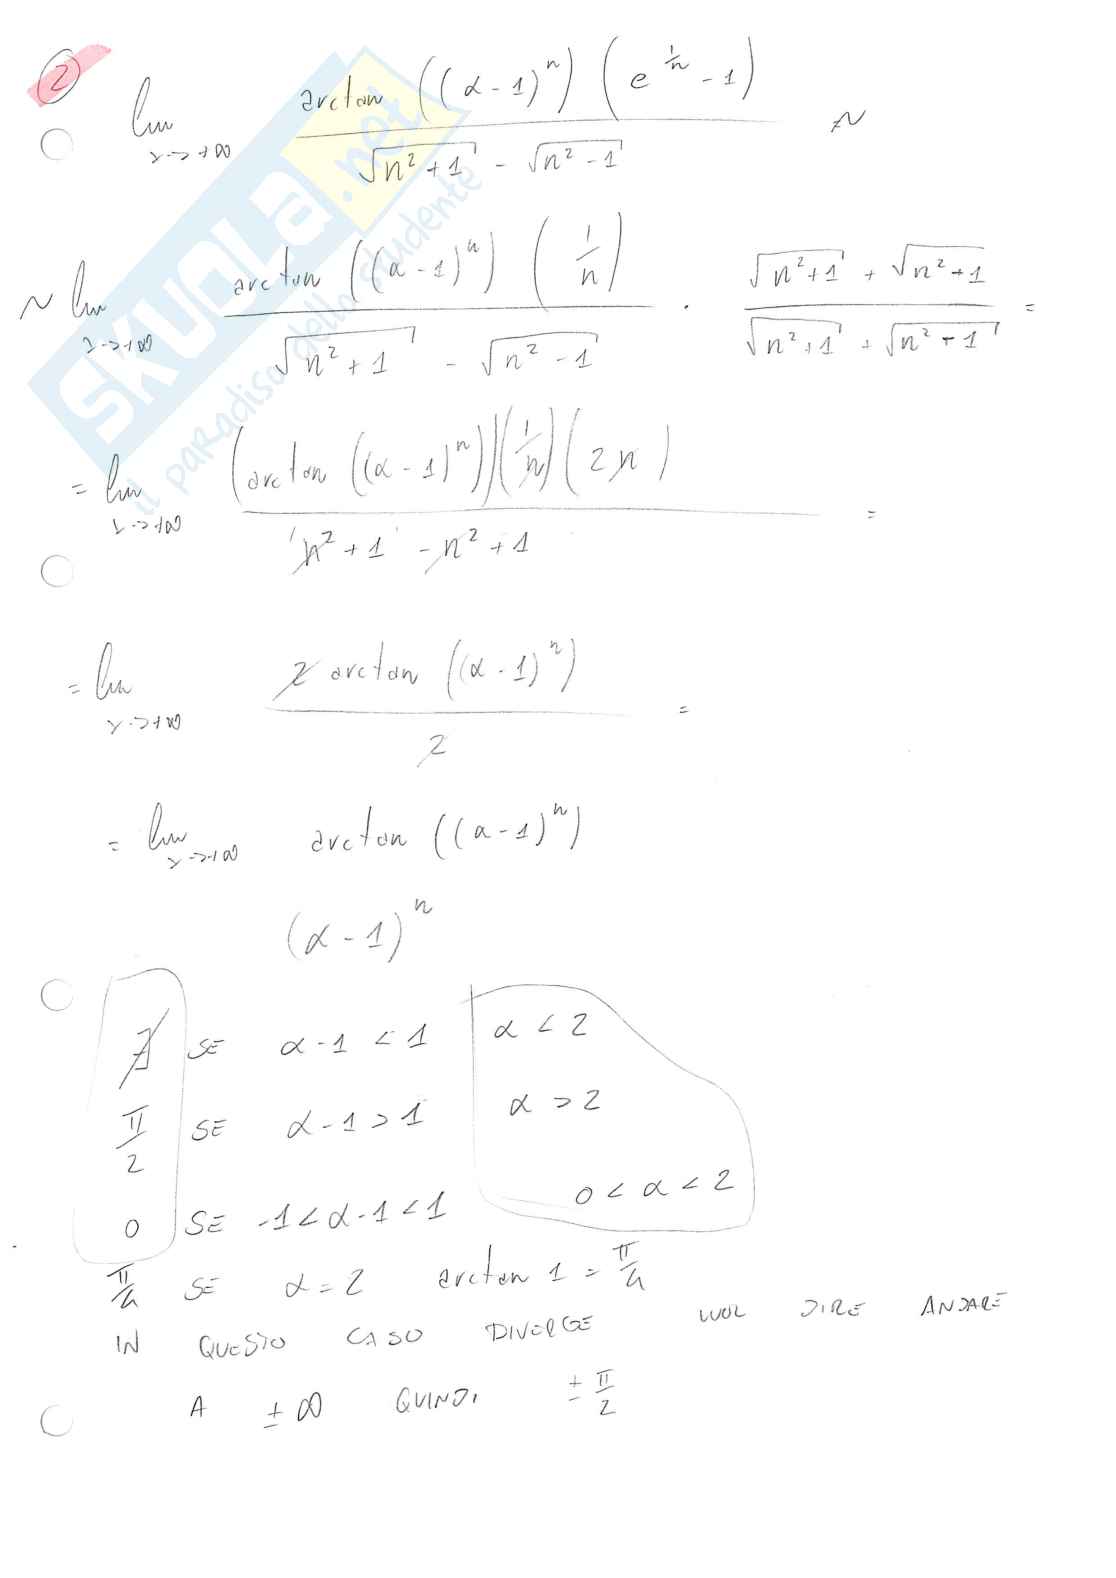 2
lim x->+∞ arctan ((α-1)^n) (e^(1/n) - 1) / (√(n²+1) - √(n²-1)) ~
~ lim x->+∞ arctan ((α-1)^n) (1/n) / (√(n²+1) - √(n²-1)) · (√(n²+1) + √(n²-1)) / (√(n²+1) + √(n²-1)) =
= lim x->+∞ (arctan ((α-1)^n)) (1/n) (2n) / (n²+1 - n²+1) =
= lim x->+∞ 2 arctan ((α-1)^n) / 2 =
= lim x->+∞ arctan ((α-1)^n)
(α-1)^n
∄ SE α-1 < 1 α < 2
π/2 SE α-1 > 1 α > 2
0 SE -1 < α-1 < 1 0 < α < 2
π/4 SE α = 2 arctan 1 = π/4
IN QUESTO CASO DIVERGE VUOL DIRE ANDARE
A ±∞ QUINDI ± π/2
SKUOLA.net
il paradiso dello studente